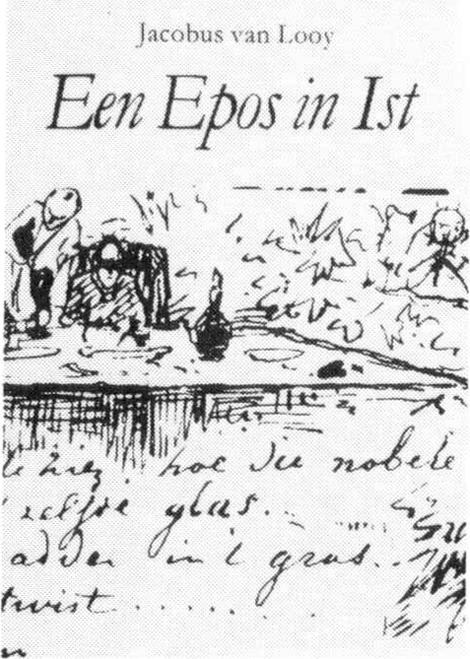 Jacobus van Looy
Een Epos in Ist
hoe die nobele
zelfde glas.
adder in 't gras..
twist.....